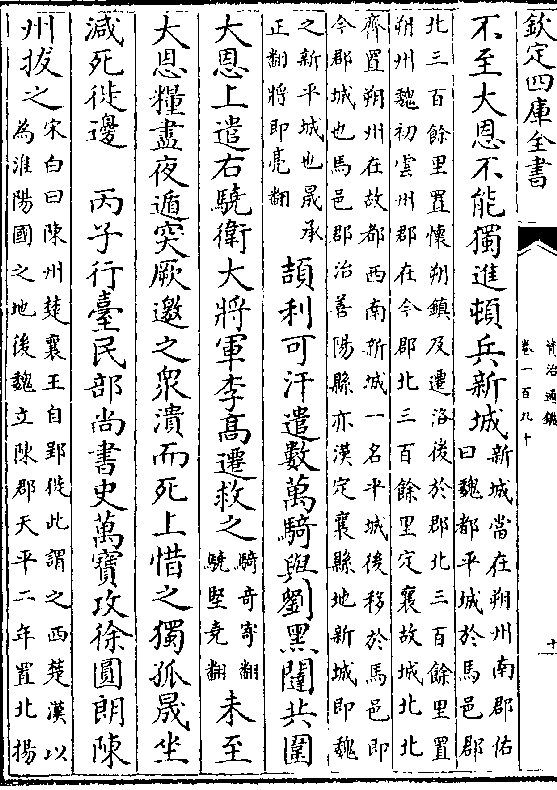 欽定四庫全書
資治通鑑
卷一百九十
十
不至大恩不能獨進頓兵新城
新城當在朔州南郡佑
曰魏都平城於馬邑郡
北三百餘里置懷朔鎮及遷洛後於郡北三百餘里置
朔州魏初雲州郡在今郡北三百餘里定襄故城北北
齊置朔州在故都西南新城一名平城後移於馬邑即
今郡城也馬邑郡治善陽縣亦漢定襄縣地新城即魏
之新平城也晟承
正翻將即亮翻
頡利可汗遣數萬騎與劉黑闥共圍
大恩上遣右驍衛大將軍李髙遷救之
騎奇寄翻
驍堅堯翻
未至
大恩糧盡夜遁突厥邀之衆潰而死上惜之獨孤晟坐
減死徙邊 丙子行臺民部尚書史萬寶攻徐圓朗陳
州拔之
宋白曰陳州楚襄王自郢徙此謂之西楚漢以
為淮陽國之地後魏立陳郡天平二年置北揚